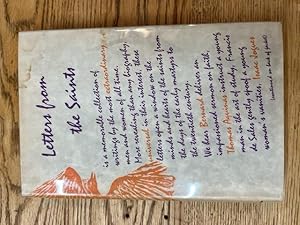 Letters from
the Saints
is a memorable collection of
writings by the most extraordinary
men and women of all time.
More revealing than any biography,
universal in their interest, these
letters open a window on the
minds and hearts of the saints from
the days of the early martyrs to
the twentieth century.
We hear Bernard deliver an
impassioned sermon on faith,
Thomas Aquinas instruct a young
man in the art of study, Francis
de Sales gently spoof a young
woman's vanities, Isaac Jogues
(continued on back of jacket)